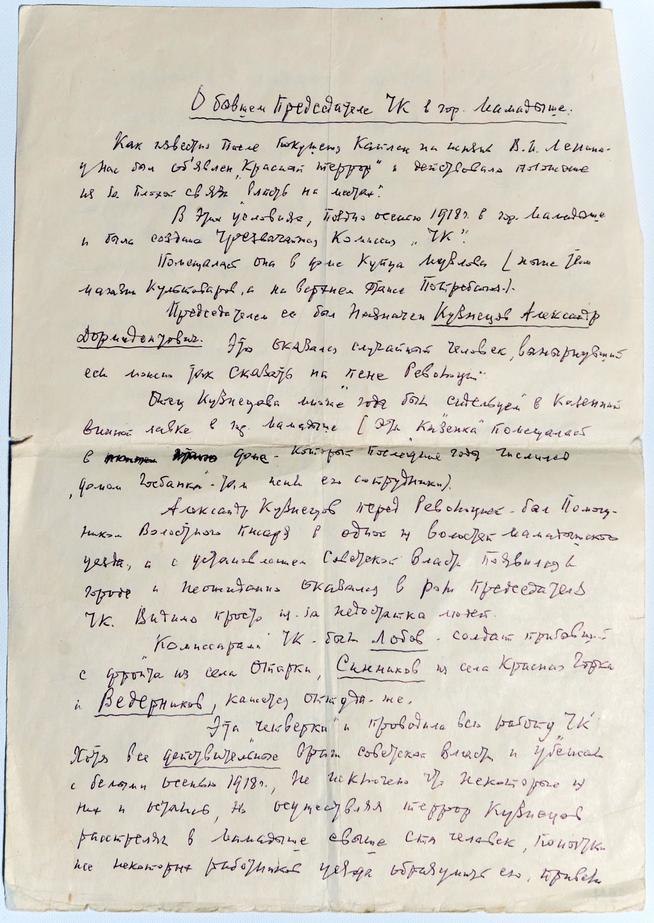 О бывшем Председателе ЧК в гор. Мамадыше.
Как известно после покушения Каплан на жизнь В.И. Ленина
у нас был об'явлен „Красный террор" и действовало положение
из за плохой связи „власть на местах".
В этих условиях, поздно осенью 1918 г. в гор. Мамадыше
и была создана Чрезвычайная Комиссия „ЧК".
Помещалась она в доме Купца (ныне там
магазин Культтоваров, а на верхнем этаже Потребсоюз).
Председателем ее был назначен Кузнецов Александр
Дормидонтович. Это оказался случайный человек, вынырнувший
если можно так сказать на пене Революции.
Отец Кузнецова многие года был сидельцем в Казенной
винной лавке в гор. Мамадыше (Эта „Казенка" помещалась
в доме. Который последние года числился
„домом Госбанка" - там жили его сотрудники).
Александр Кузнецов перед Революцией - был Помощ-
ником Волостного писаря в одной из волостей Мамадышского
уезда, и с установлением Советской Власти появился в
городе и неожиданно оказался в роли Председателя
ЧК. Видимо просто из-за недостатка людей.
„Комиссарами" ЧК - были Лобов - солдат прибывший
с фронта из села Отарки, Синников из села Красная Горка
и Ведерников, кажется оттуда-же.
Эта „четверка" и проводила всю работу ЧК
Хотя все действительные враги советской власти и убежали
с белыми осенью 1918 г., не исключено что некоторые из
них и остались, но осуществляя террор Кузнецов
расстрелял в Мамадыше свыше ста человек, попытки
же некоторых работников уезда образумить его, привели